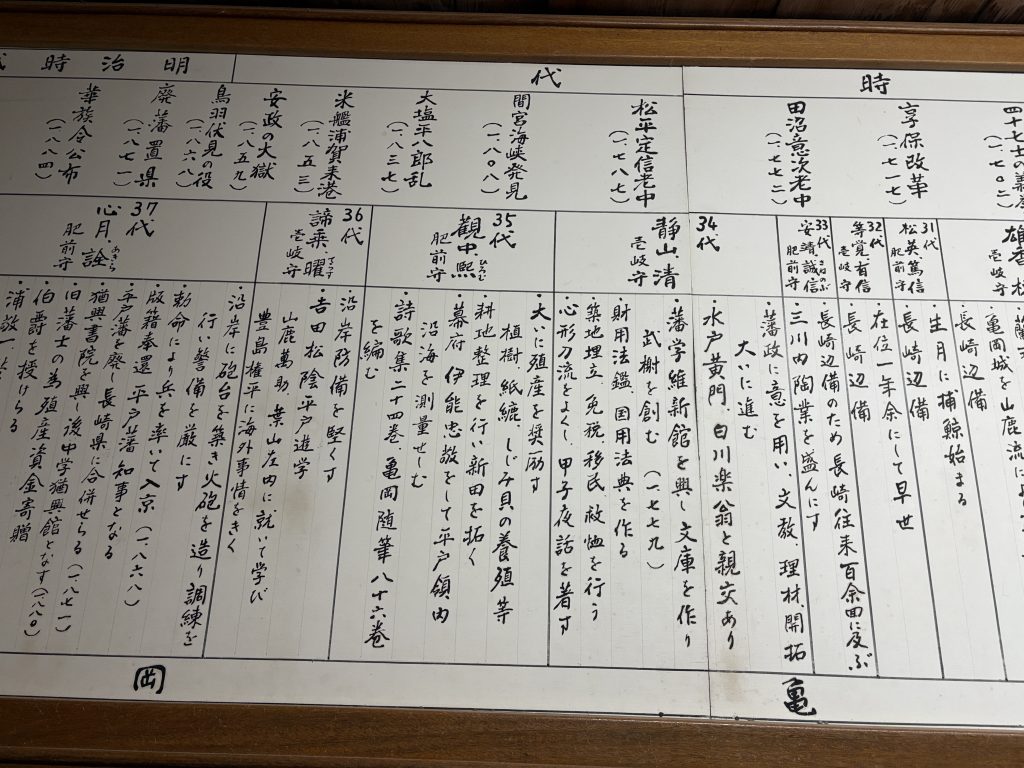 時
代
明治時
四十七士の義
(一、七〇二)
亨保改革
(一七一七)
田沼意次老中
(一、七七二)
松平定信老中
(一、七八七)
間宮海峡発見
(一、八〇八)
大塩平八郎乱
(一、八三七)
米艦浦賀来港
(一、八五三)
安政の大獄
(一、八五九)
鳥羽伏見の役
(一、八六八)
廃藩置県
(一、八七一)
華族令公布
(一、八八四)
壱岐守
・亀岡城を山鹿流に
・長崎辺備
・生月に捕鯨始まる
31代
松英、篤信
肥前守
・長崎辺備
・在位一年余にして早世
32代
等覚、有信
壱岐守
・長崎辺備
・長崎辺備のため長崎往来百余回に及ぶ
33代
安靖、誠信
肥前守
・三川内陶業を盛んにす
・藩政に意を用い、文教、理材、開拓
大いに進む
・水戸黄門、白川楽翁と親交あり
34代
静山、清
壱岐守
・藩学維新館を興し文庫を作り
武榭を創む(一七七九)
・財用法鑑、国用法典を作る
・築地埋立、免税、移民、救恤を行う
・心形刀流をよくし、甲子夜話を著す
35代
観中、熙
ひろむ
肥前守
・大いに殖産を奨励す
植樹、紙繞、しじみ貝の養殖等
・耕地整理を行い新田を拓く
・幕府、伊能忠敬をして平戸領内
沿海を測量せしむ
・詩歌集二十四巻、亀岡随筆八十六巻
を編む
36代
諦乗、曜
てらす
壱岐守
・沿岸防備を堅くす
・吉田松陰平戸進学
山鹿萬助、葉山左内に就いて学び
豊島権平に海外事情をきく
37代
心月、詮
あきら
肥前守
・沿岸に砲台を築き火砲を造り調練を
行い警備を厳にす
・勅命により兵を率いて入京(一、八六八)
・版籍奉還、平戸藩知事となる
・平戸藩を廃し長崎県に合併せらる(一八七一)
・猶興書院を興し後中学猶興館となす(一八八〇)
・旧藩士の為殖産資金寄贈
・伯爵を授けらる
亀
岡